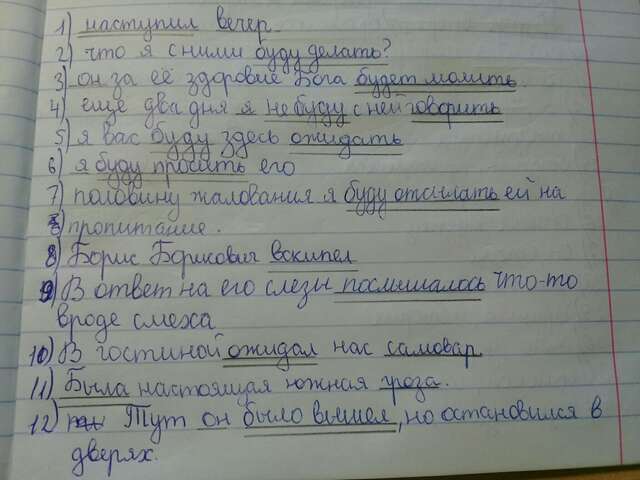 1) наступил вечер.
2) что я с ними буду делать?
3) он за её здоровие Бога будет молить.
4) ещё два дня я не буду с ней говорить
5) я вас буду здесь ожидать
6) я буду просить его
7) половину жалования я буду отсылать ей на
пропитание.
8) Борис Борисович вскипел
9) В ответ на его слезы послышалось что-то
вроде смеха
10) В гостиной ожидал нас самовар.
11) Была настоящая южная гроза.
12) Тут он было вышел, но остановился в
дверях.